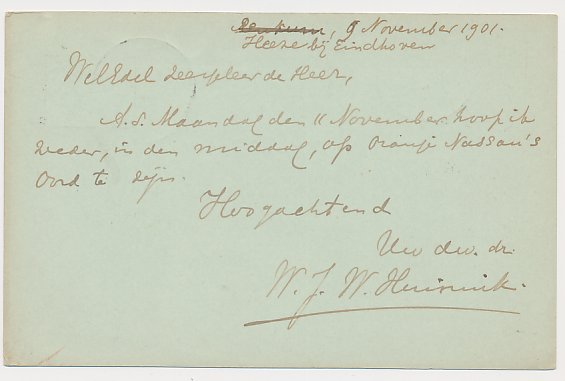 Renkum, 9 November 1901.
Heeze bij Eindhoven
WelEdel Zeergeleerde Heer,
A.s. Maandag den 11 November hoop ik
weder, in den middag, op Oranje Nassau's
Oord te zijn.
Hoogachtend
Uw dw. dr.
W. J. W.